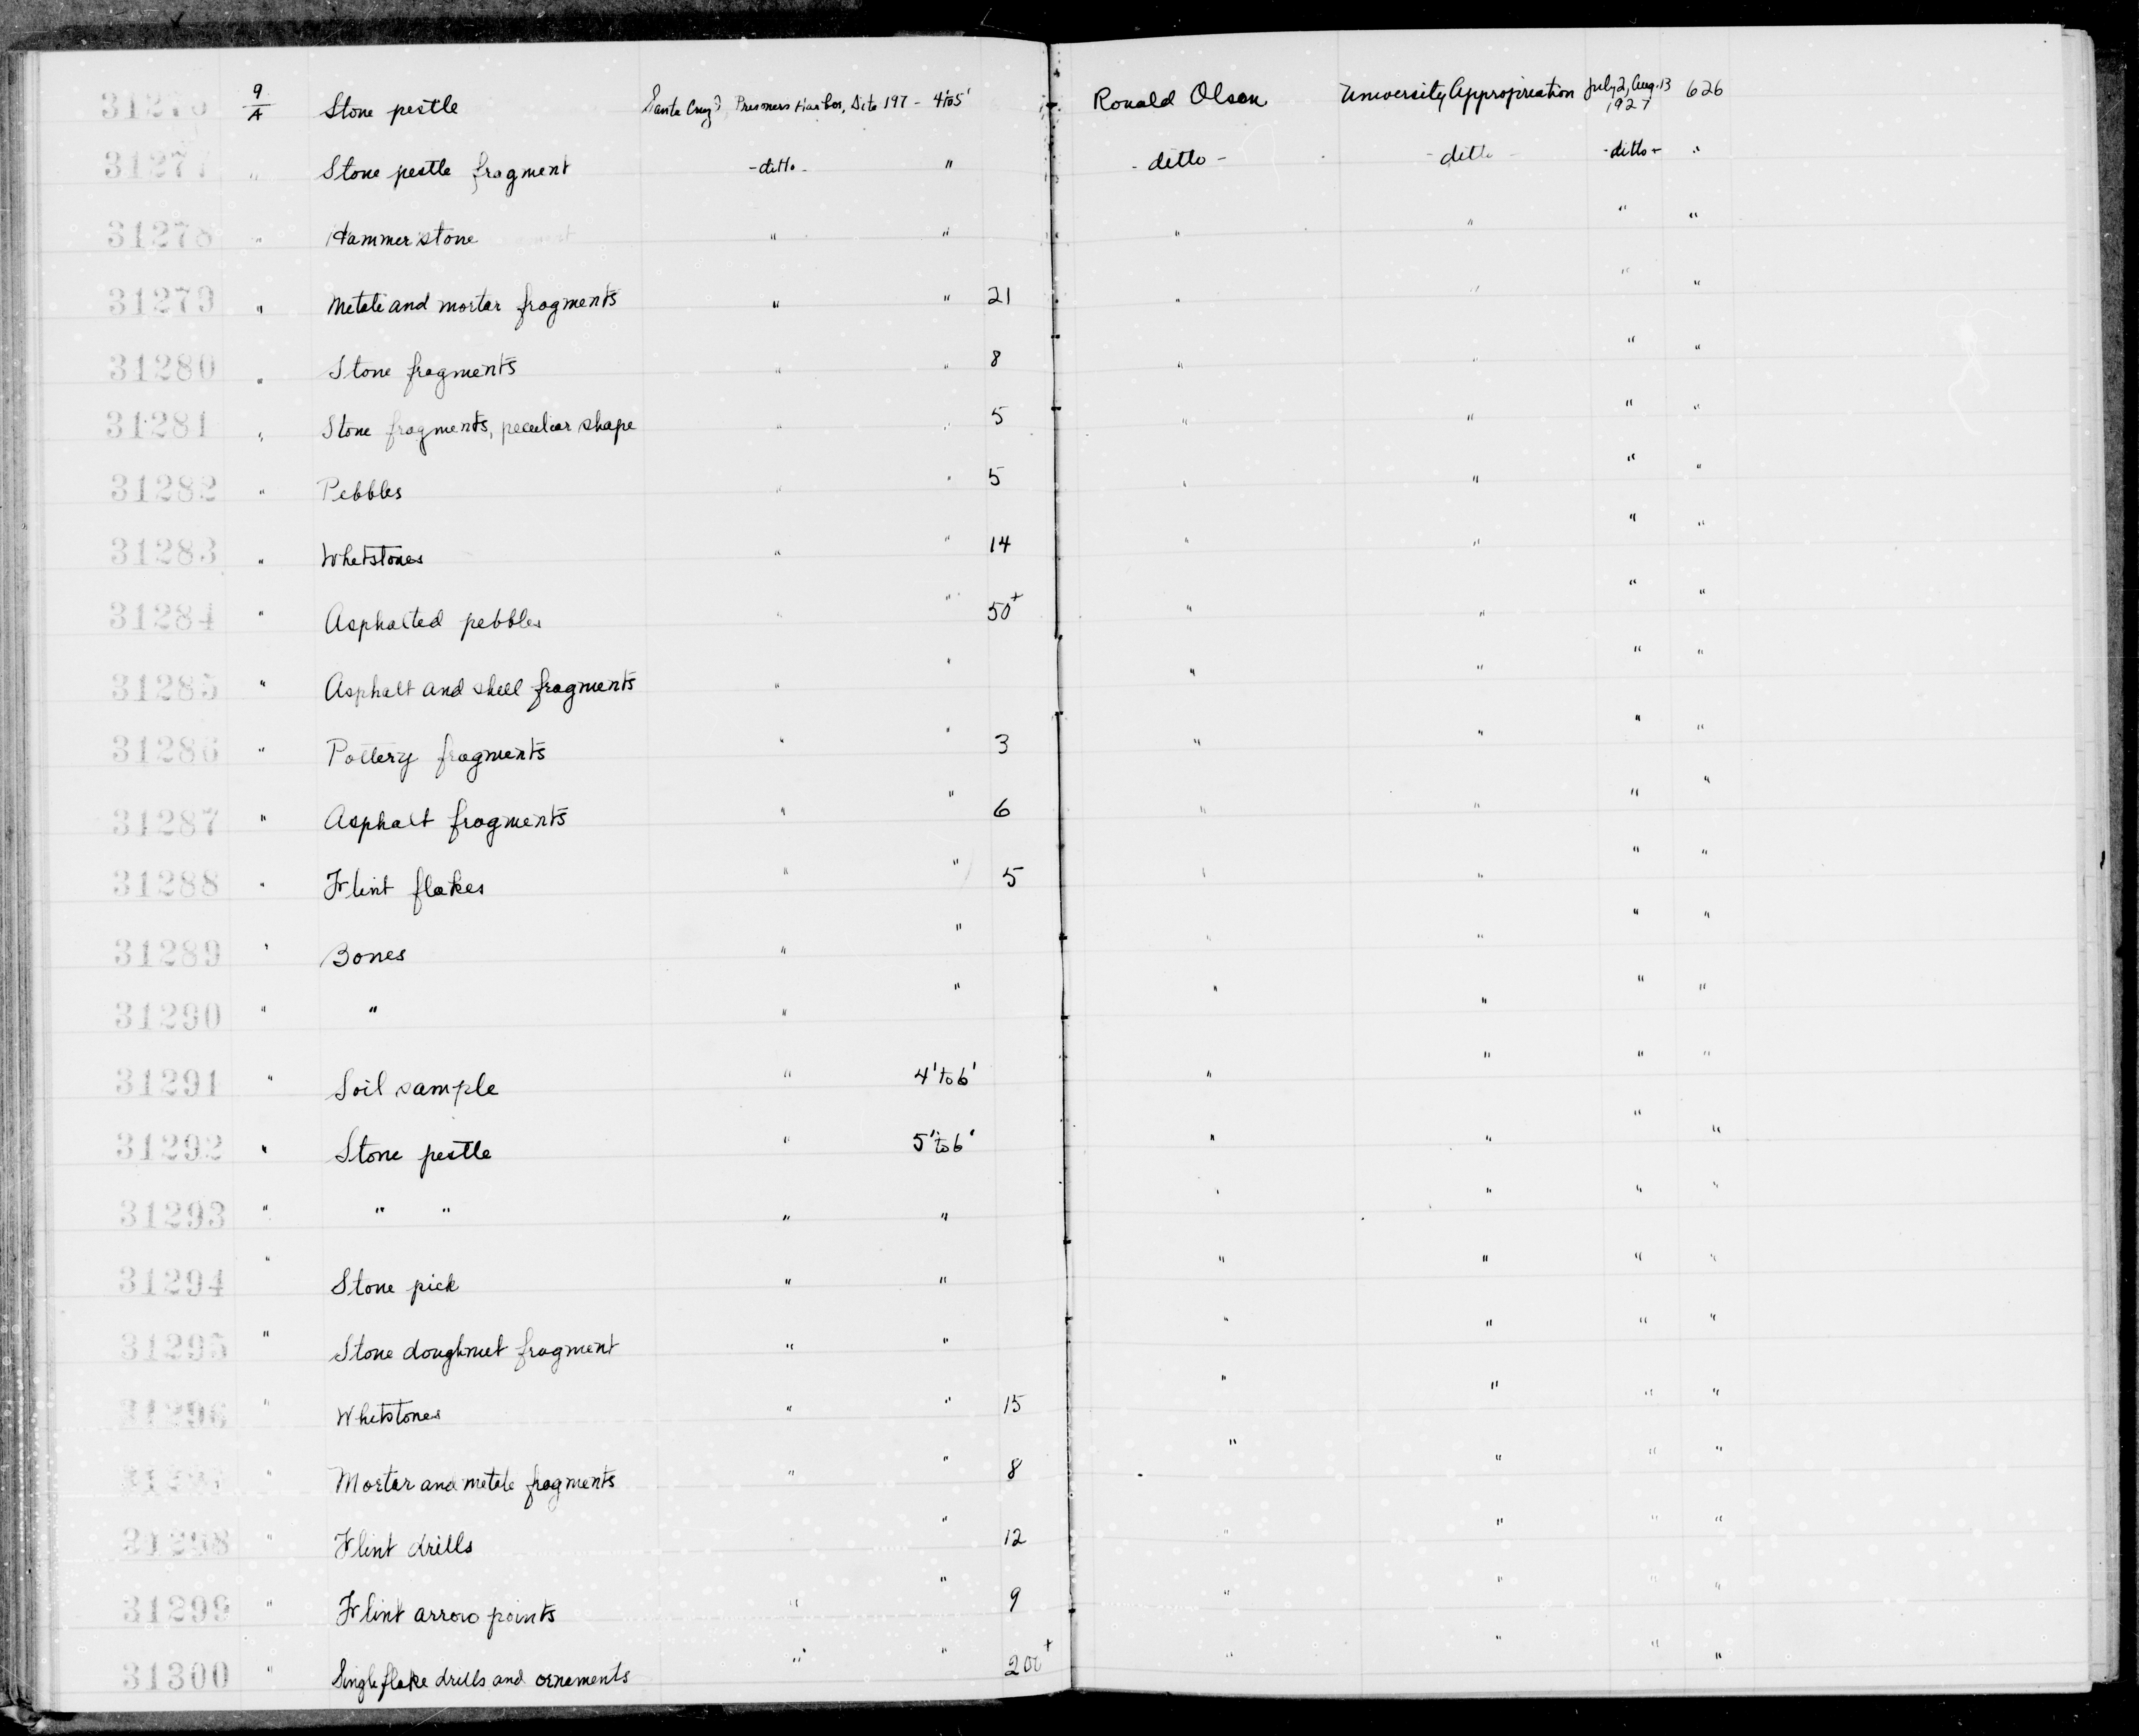 31276 9/A Stone pestle Santa Cruz I, Prisoners Harbor, Site 197 - 4'to5' Ronald Olson University Appropriation July 2, Aug. 13 1927 626
31277 " Stone pestle fragment -ditto- " -ditto- -ditto- -ditto- "
31278 " Hammerstone " " " " " "
31279 " Metate and mortar fragments " " 21 " " " "
31280 " Stone fragments " " 8 " " " "
31281 " Stone fragments, peculiar shape " " 5 " " " "
31282 " Pebbles " " 5 " " " "
31283 " Whetstones " " 14 " " " "
31284 " Asphalted pebbles " " 50+ " " " "
31285 " Asphalt and shell fragments " " " " " "
31286 " Pottery fragments " " 3 " " " "
31287 " Asphalt fragments " " 6 " " " "
31288 " Flint flakes " " 5 " " " "
31289 " Bones " " " " " "
31290 " " " " " " " "
31291 " Soil sample " 4'to6' " " " "
31292 " Stone pestle " 5'to6' " " " "
31293 " " " " " " " " "
31294 " Stone pick " " " " " "
31295 " Stone doughnut fragment " " " " " "
31296 " Whetstones " " 15 " " " "
31297 " Mortar and metate fragments " " 8 " " " "
31298 " Flint drills " 12 " " " "
31299 " Flint arrow points " " 9 " " " "
31300 " Single flake drills and ornaments " " 200+ " " " "